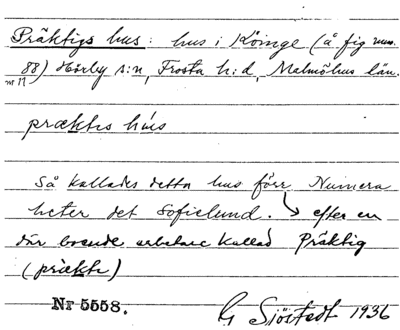 Präktigs hus: hus i Köinge (å fig num.
88) Hörby s:n, Frosta h:d, Malmöhus län.
nr 11
præktis hús
Så kallades detta hus förr. Numera
heter det Sofielund. efter en
där boende arbetare kallad Präktig
(prækte)
Nr 5558.
G Sjöstedt 1936